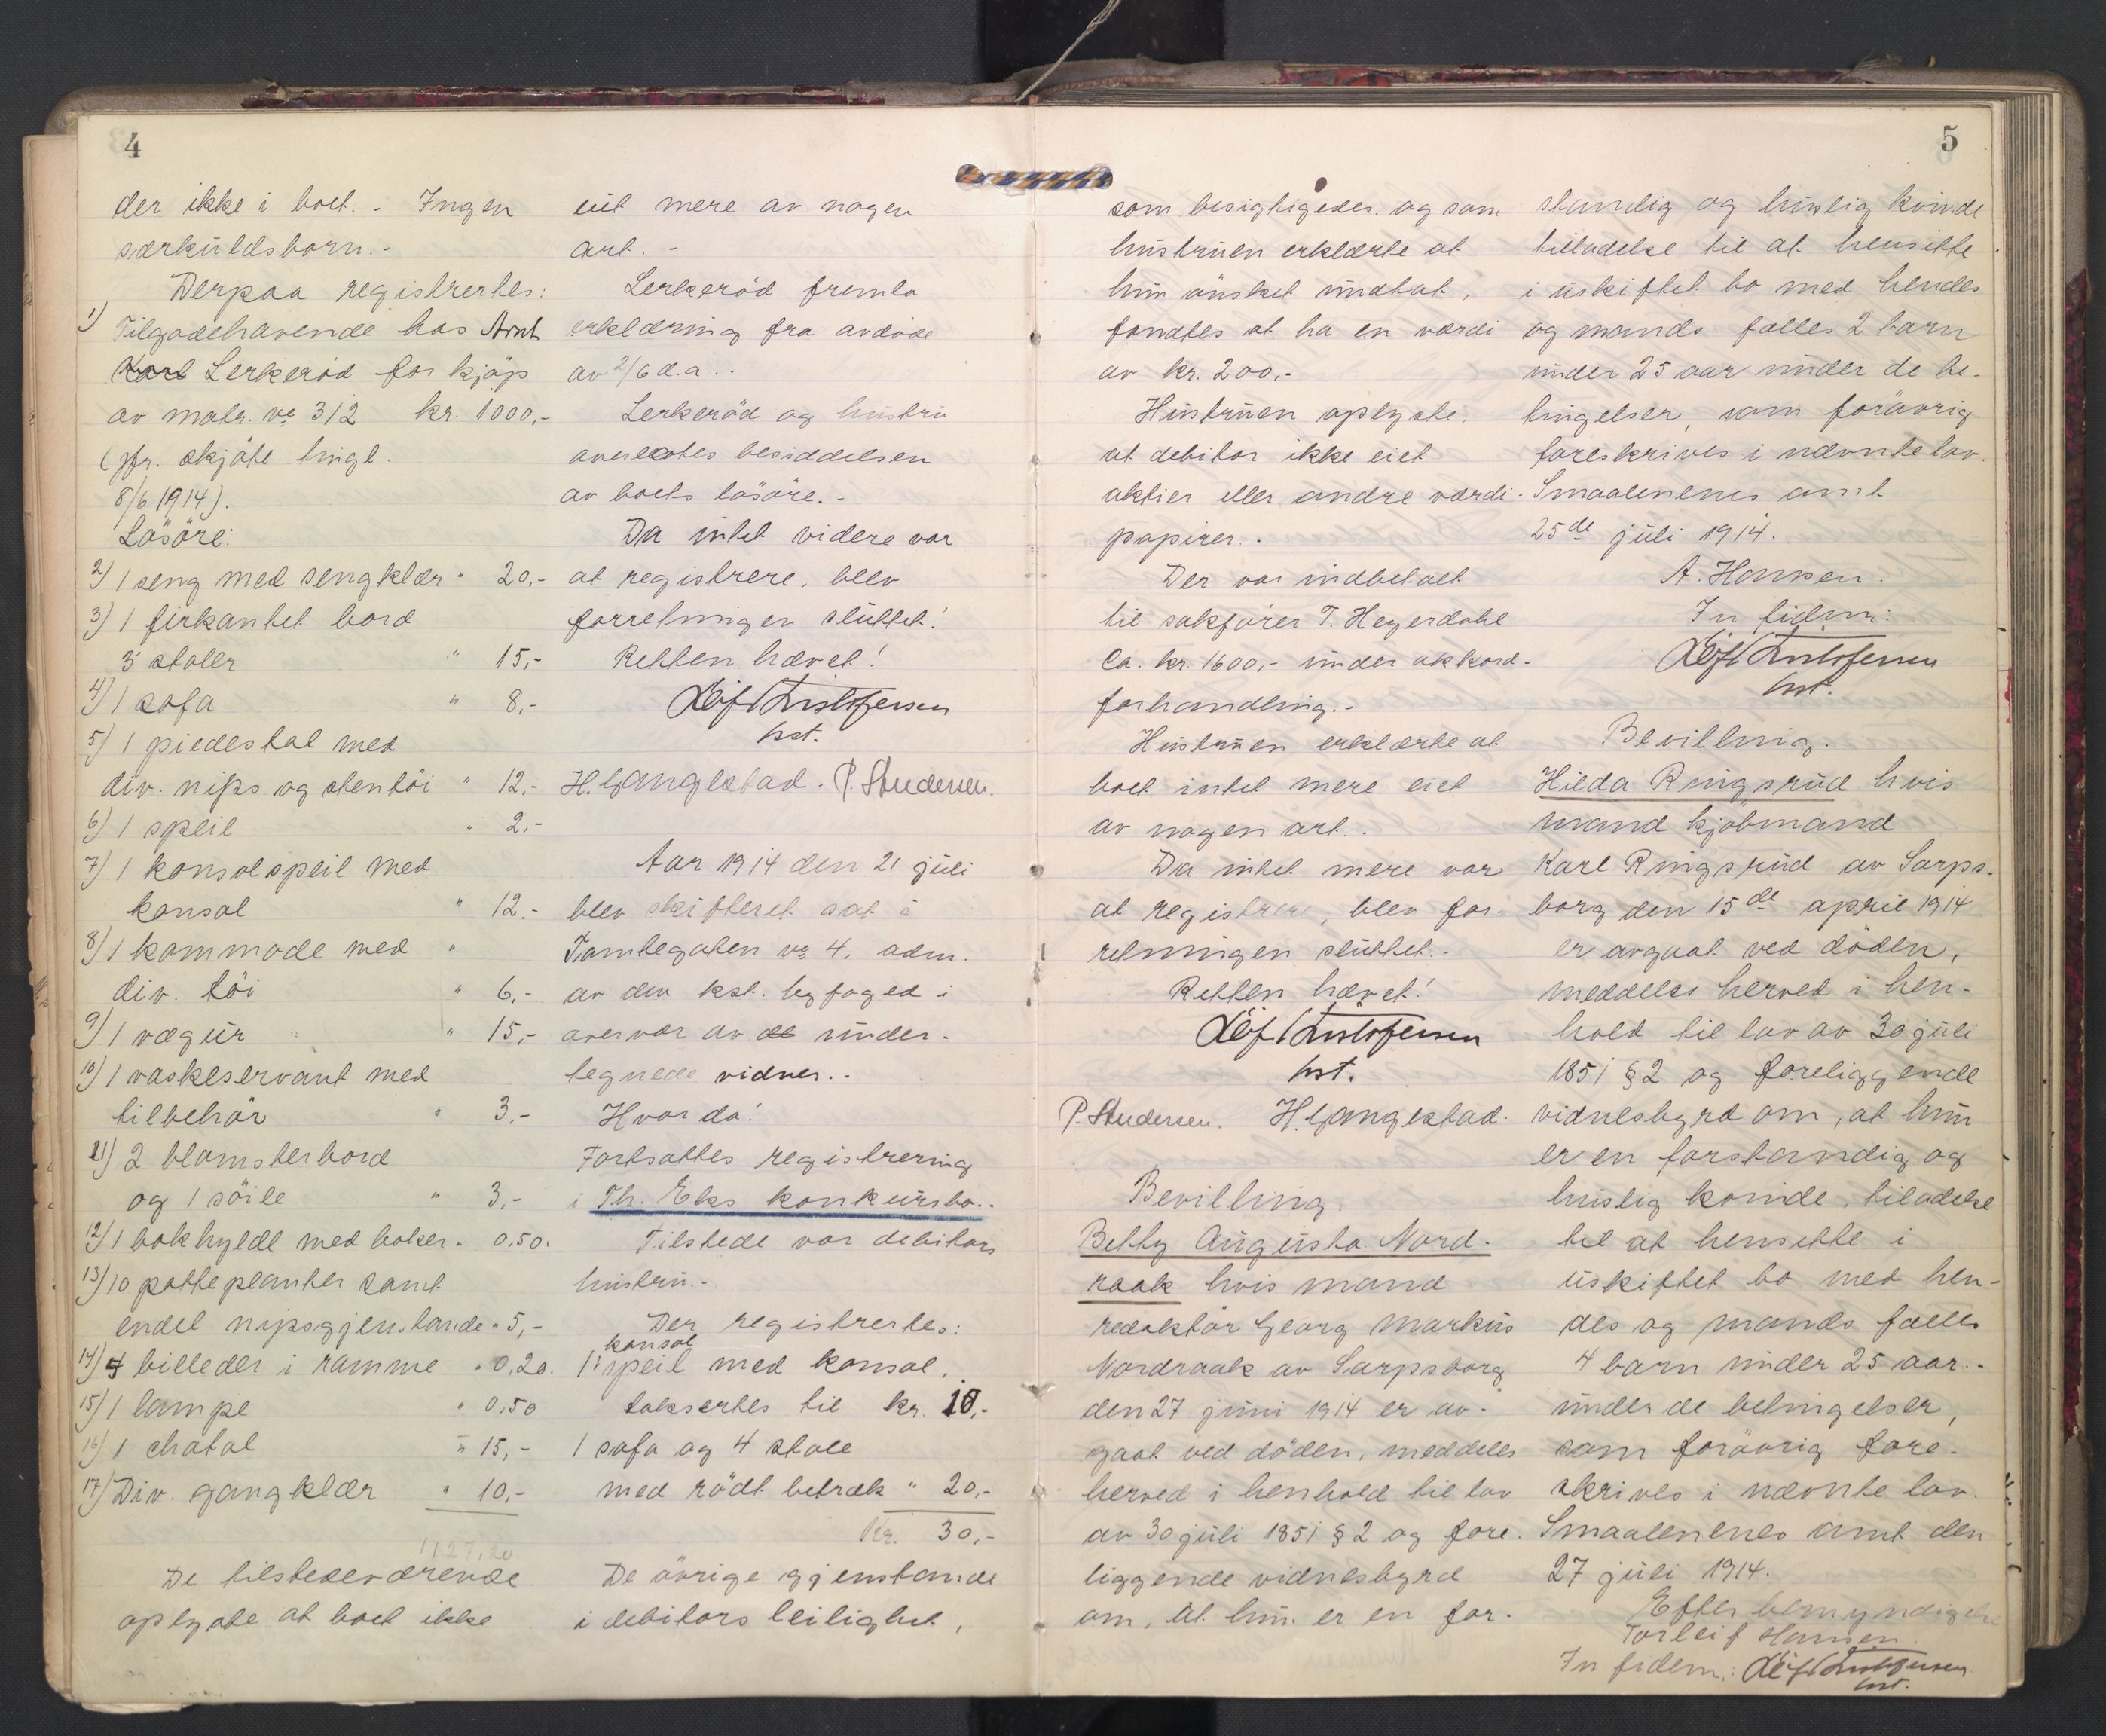 4
der ikke i boet. - Ingen
særkuldsbarn. -
Derpaa registrertes:
1) Tilgodehavende hos Arnt
Karl Lerkeröd for kjöp
av matr. no 312 kr. 1000,-
(jfr. skjöte tingl.
8/6 1914).
Lösöre:
2) 1 seng med sengklær " 20,-
3) 1 firkantet bord
3 stoler " 15,-
4) 1 sofa " 8,-
5) 1 piedestal med
div. nips og stentöi " 12,-
6) 1 speil " 2,-
7) 1 konsolspeil med
konsol " 12.-
8) 1 kommode med "
div. töi " 6,-
9) 1 vægur " 15,-
10) 1 vaskeservant med
tilbehör " 3,-
11) 2 blomsterbord
og 1 söile " 3,-
12) 1 bokhylde med böker " 0,50.
13) 10 potteplanter samt
endel nipsgjenstande " 5,-
14) 4 billeder i ramme " 0,20.
15) 1 lampe " 0,50
16) 1 chatol " 15,-
17) Div. gangklær " 10,-
1127,20.
De tilstedeværende
oplyste at boet ikke
eiet mere av nogen
art. -
Lerkeröd fremla
erklæring fra avdöde
av 2/6 d.a..
Lerkeröd og hustru
overlotes besiddelsen
av boets lösöre. -
Da intet videre var
at registrere, blev
forretningen sluttet!
Retten hævet!
Kristofersen
kst.
H. Gangestad. P. Andersen.
Aar 1914 den 21 juli
blev skifteret sat i
Tombegaten no 4, adm.
av den kst. byfoged i
overvær av de under-
tegnede vidner..
Hvorda!
Fortsattes registrering
i Th. Eks konkursbo..
Tilstede var debitors
hustru.-
Der registrertes:
konsol
1 speil med konsol,
taksertes til kr. 10,-
1 sofa og 4 stole
med rödt betræk " 20,-
Kr. 30,-
De övrige gjenstande
i debitors leilighet,
5
som besigtigedes og som
hustruen erklærte at
hun önsket undtat,
fandtes at ha en værdi
av kr. 200,-
Hustruen oplyste,
at debitor ikke eiet
aktier eller andre værdi-
papirer. -
Der var indbetalt
til sakförer T. Heyerdahl
Ca. kr. 1600,- under akkord-
forhandling.-
Hustruen erklærte at
boet intet mere eiet
av nogen art..
Da intet mere var
at registrere, blev for-
retningen sluttet..
Retten hævet!
Kristofersen
kst.
P. Andersen. H. Gangestad.
Bevilling.
Betty Augusta Nord-
raak hvis mand
redaktör Georg Markus
Nordraak av Sarpsborg
den 27 juni 1914 er av-
gaat ved döden, meddeles
herved i henhold til lov
av 30 juli 1851 § 2 og fore-
liggende vidnesbyrd
om, at hun er en for-
standig og huslig kvinde
tilladelse til at hensitte
i uskiftet bo med hendes
og mands fælles 2 barn
under 25 aar under de be-
tingelser, som forövrig
foreskrives i nævnte lov.
Smaalenenes amt
25de juli 1914.
A. Hansen.
In fidem:
Kristofersen
kst.
Bevilling.
Hilda Ringsrud hvis
mand kjöbmand
Karl Ringsrud av Sarps-
borg den 15de april 1914
er avgaat ved döden,
meddeles herved i hen-
hold til lov av 30 juli
1851 § 2 og foreliggende
vidnesbyrd om, at hun
er en forstandig og
huslig kvinde, tiladelse
til at hensitte i
uskiftet bo med hen-
des og mands fælles
4 barn under 25 aar.-
under de betingelser,
som forövrig fore-
skrives i nævnte lov.
Smaalenenes amt den
27 juli 1914.
Efter bemyndigelse
Torleif Hansen.
In fidem: Kristofersen
kst.